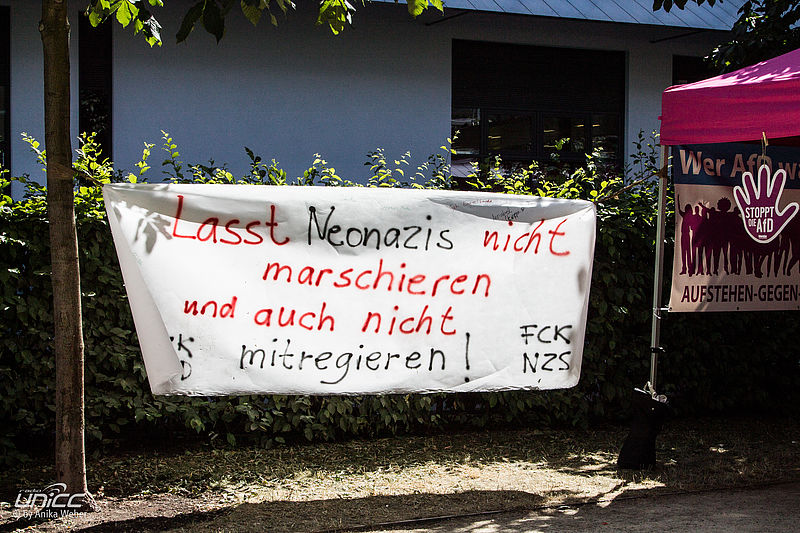 Lasst Neonazis nicht
marschieren
und auch nicht
mitregieren!
FCK
NZS
Wer AfD
STOPPT
DIE
AfD
AUFSTEHEN-GEGEN-
UNiCC
© by Anika Weber